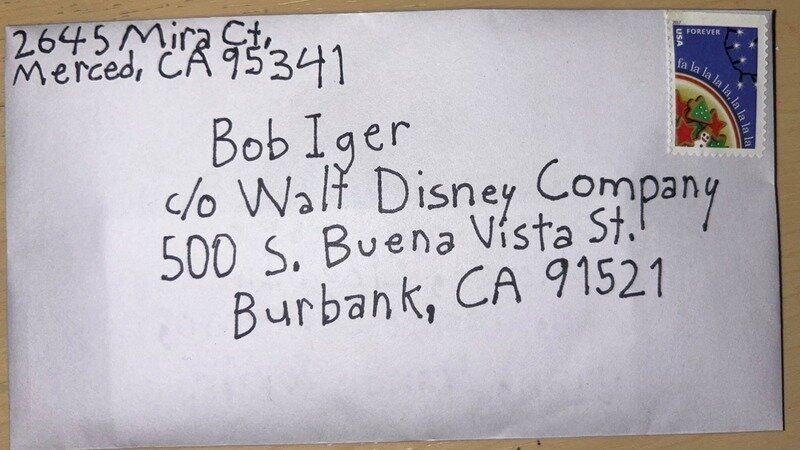 2645 Mira Ct.
Merced, CA 95341
2017
USA
FOREVER
fa la la la la, la la la la
Bob Iger
c/o Walt Disney Company
500 S. Buena Vista St.
Burbank, CA 91521